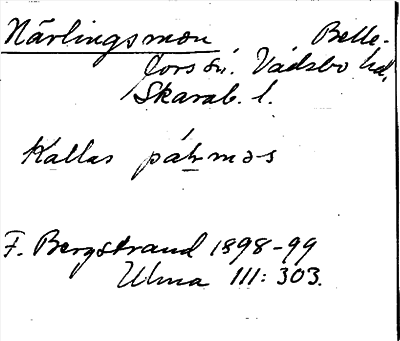 Närlingsmon Belle-
fors sn. Vadsbo hd,
Skarab. l.
Kallas påhmɔs
F. Bergstrand 1898-99
Ulma 111: 303.